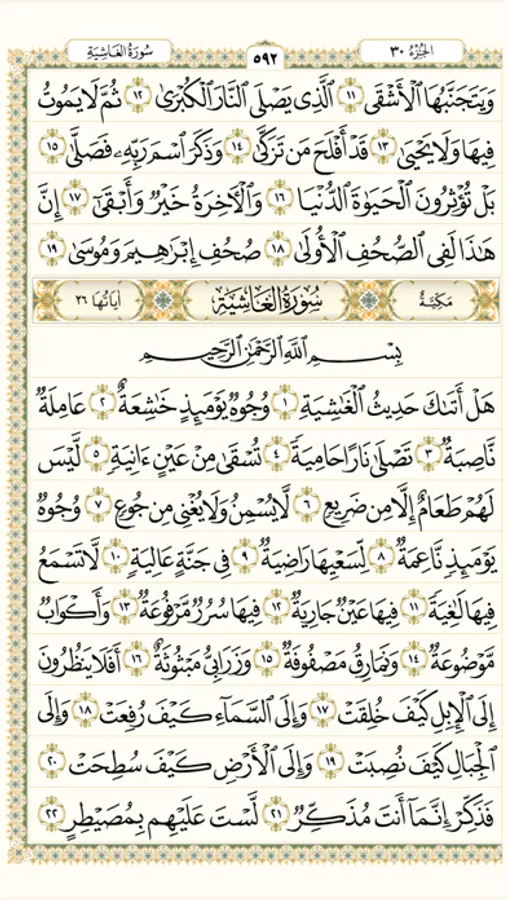 الجزء ٣٠
٥٩٢
سورة الغاشية
وَيَتَجَنَّبُهَا الْأَشْقَى ١١ الَّذِي يَصْلَى النَّارَ الْكُبْرَىٰ ١٢ ثُمَّ لَا يَمُوتُ
فِيهَا وَلَا يَحْيَىٰ ١٣ قَدْ أَفْلَحَ مَن تَزَكَّىٰ ١٤ وَذَكَرَ اسْمَ رَبِّهِۦ فَصَلَّىٰ ١٥
بَلْ تُؤْثِرُونَ الْحَيَوٰةَ الدُّنْيَا ١٦ وَالْأَخِرَةُ خَيْرٌ وَأَبْقَىٰ ١٧ إِنَّ
هَـٰذَا لَفِي الصُّحُفِ الْأُولَىٰ ١٨ صُحُفِ إِبْرَٰهِيمَ وَمُوسَىٰ ١٩
مَكِّيَّة سُورَةُ الْغَاشِيَةِ اٰيَاتُهَا ٢٦
بِسْمِ اللَّهِ الرَّحْمَـٰنِ الرَّحِيمِ
هَلْ أَتَىٰكَ حَدِيثُ الْغَـٰشِيَةِ ١ وُجُوهٌ يَوْمَئِذٍ خَـٰشِعَةٌ ٢ عَامِلَةٌ
نَّاصِبَةٌ ٣ تَصْلَىٰ نَارًا حَامِيَةً ٤ تُسْقَىٰ مِنْ عَيْنٍ ءَانِيَةٍ ٥ لَّيْسَ
لَهُمْ طَعَامٌ إِلَّا مِن ضَرِيعٍ ٦ لَّا يُسْمِنُ وَلَا يُغْنِي مِن جُوعٍ ٧ وُجُوهٌ
يَوْمَئِذٍ نَّاعِمَةٌ ٨ لِّسَعْيِهَا رَاضِيَةٌ ٩ فِي جَنَّةٍ عَالِيَةٍ ١٠ لَّا تَسْمَعُ
فِيهَا لَـٰغِيَةً ١١ فِيهَا عَيْنٌ جَارِيَةٌ ١٢ فِيهَا سُرُرٌ مَّرْفُوعَةٌ ١٣ وَأَكْوَابٌ
مَّوْضُوعَةٌ ١٤ وَنَمَارِقُ مَصْفُوفَةٌ ١٥ وَزَرَابِيُّ مَبْثُوثَةٌ ١٦ أَفَلَا يَنظُرُونَ
إِلَى الْإِبِلِ كَيْفَ خُلِقَتْ ١٧ وَإِلَى السَّمَآءِ كَيْفَ رُفِعَتْ ١٨ وَإِلَى
الْجِبَالِ كَيْفَ نُصِبَتْ ١٩ وَإِلَى الْأَرْضِ كَيْفَ سُطِحَتْ ٢٠
فَذَكِّرْ إِنَّمَآ أَنتَ مُذَكِّرٌ ٢١ لَّسْتَ عَلَيْهِم بِمُصَيْطِرٍ ٢٢